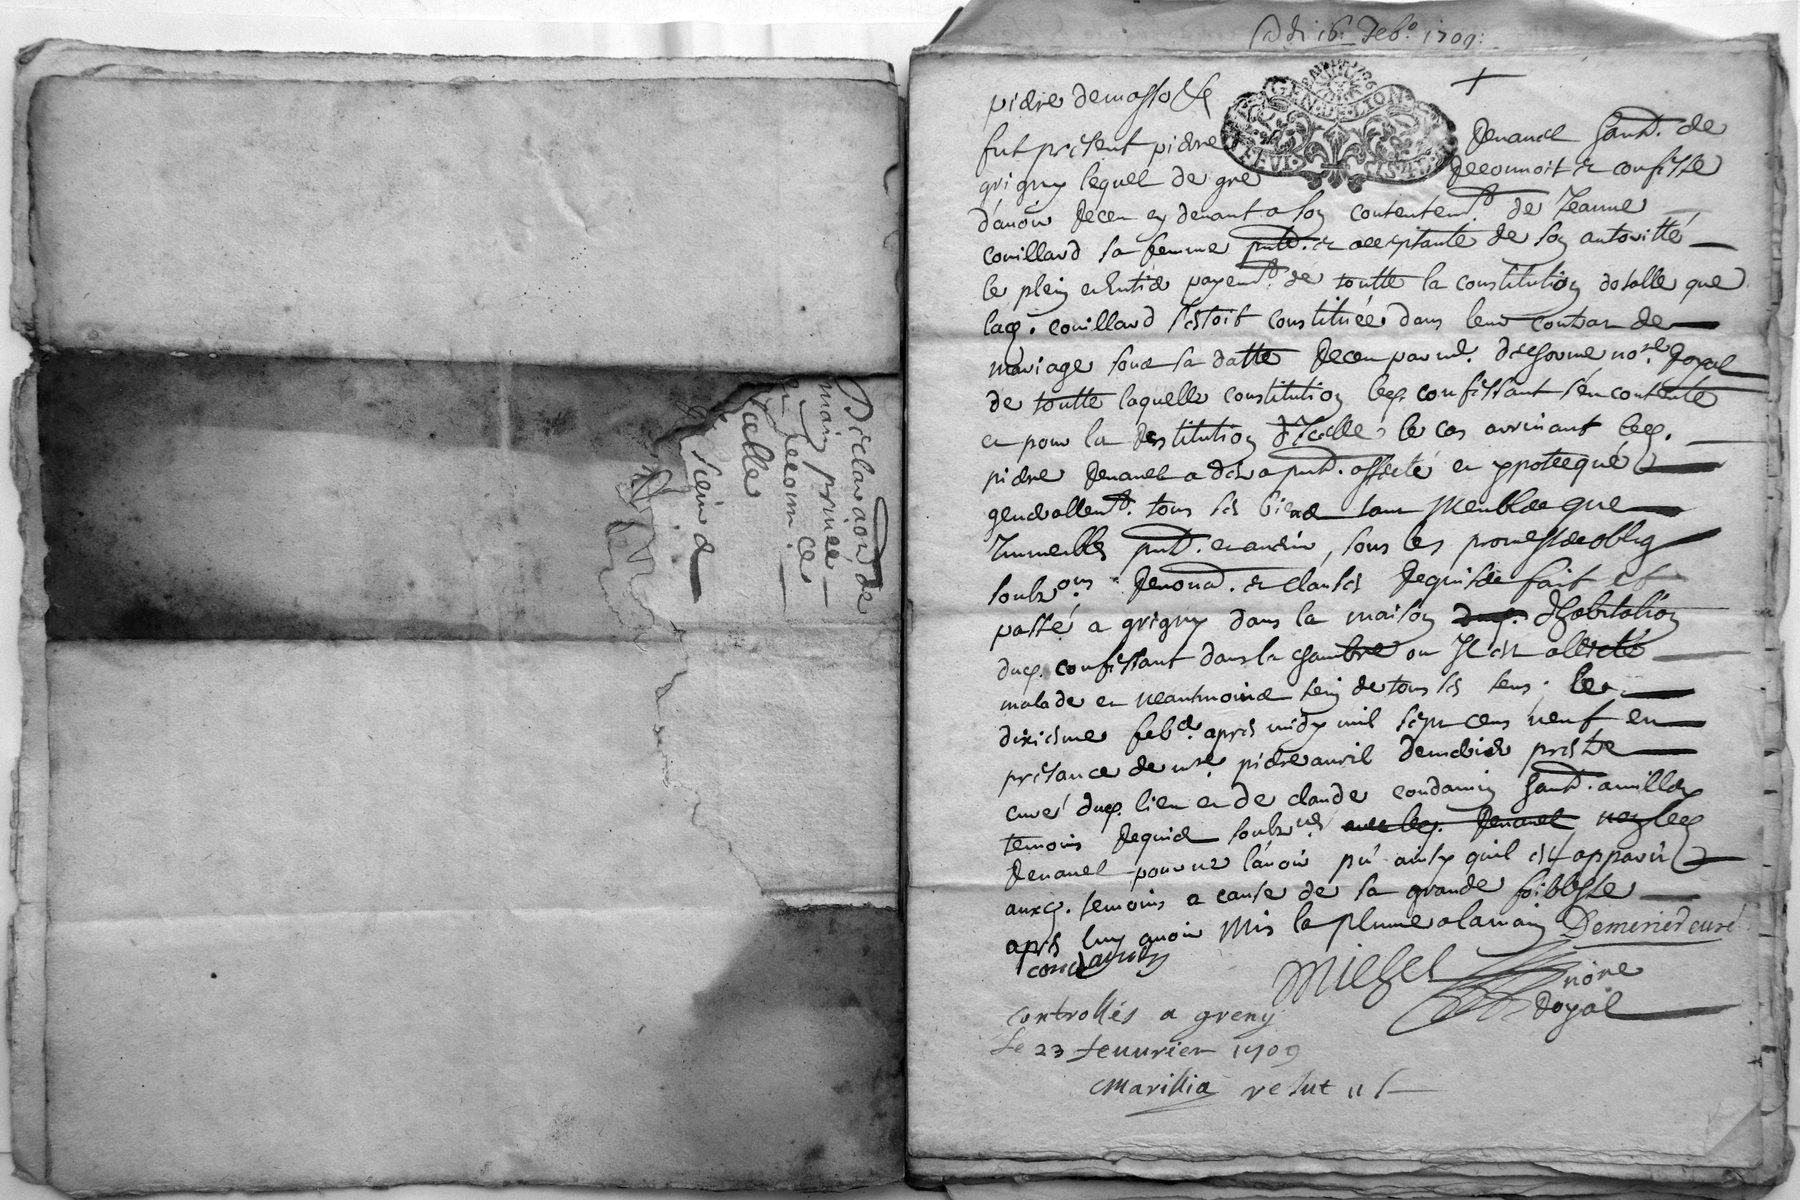 Declaraõn de
main privee
en reconn.ce
celle
le siein
Adi 16. Feb.o 1709:
GEN. DE LION
fut present pierre Revanel hant. de
grigny lequel de gré reconnoit et confesse
d'avoir receu cy devant a son contentem.t de Jeanne
couillard sa femme pnte. et acceptante de son autoritté
le plein et entier payem.t de toutte la constitution dotalle que
lad. couillard s'estoit constituée dans leur contrat de
mariage sous sa datte receu par me. no.re Royal
de toutte laquelle constitution led. confessant s'en contente
et pour la restitution d'Icelle le cas arrivant led.
pierre Revanel a des a pnt. affecté et ypotecqué
generallem.t tous ses biens tant Meubles que
Immeubles pnt. et avenir, sous les promesses oblig
soub.ons renond. et clauses requises fait et
passé a grigny dans la maison dud. d'habitation
dud. confessant dans la chambre ou Il est allicté
malade et neantmoins sein de tous ses sens. le
dixiesme feb.er apres midy mil sept cens neuf en
presance de mre. pierre avril demerier prestre
curé dud. lieu et de claude condamin hant. a milley
temoins requis soub.nés avec led. Revanel non led
Revanel pour ne l'avoir pu ainsy quil est apparu
auxd. temoins a cause de sa grande foiblesse
apres luy avoir Mis la plume a la main Demerier curé
condamin
Michel nore
Royal
controllés a greny
le 23 feuurier 1709
Marillia